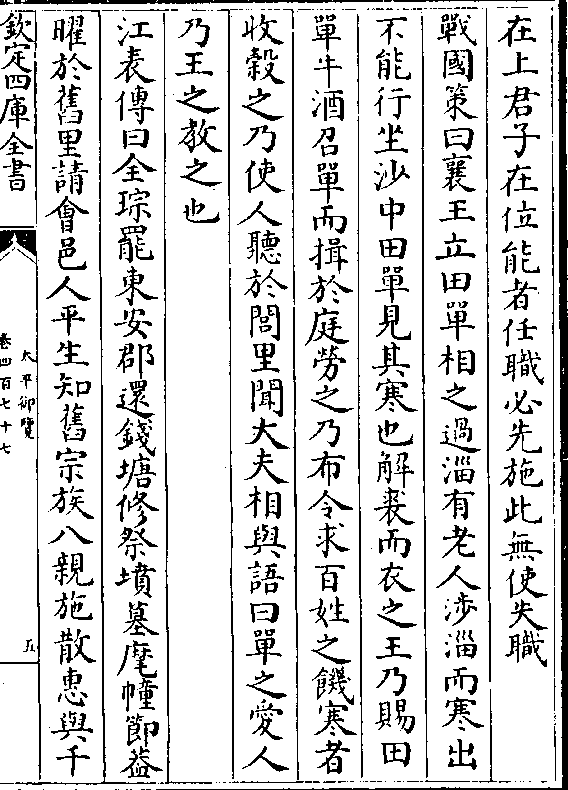 在上君子在位能者任職必先施此無使失職
戰國策曰襄王立田單相之過淄有老人涉淄而寒出
不能行坐沙中田單見其寒也解裘而衣之王乃賜田
單牛酒召單而揖於庭勞之乃布令求百姓之饑寒者
收糓之乃使人聽於閭里聞大夫相與語曰單之愛人
乃王之教之也
江表傳曰全琮罷東安郡還錢塘修祭墳墓麾幢節葢
曜於舊里請會邑人平生知舊宗族八親施散惠與千
欽定四庫全書
太平御覽
卷四百七十七
五